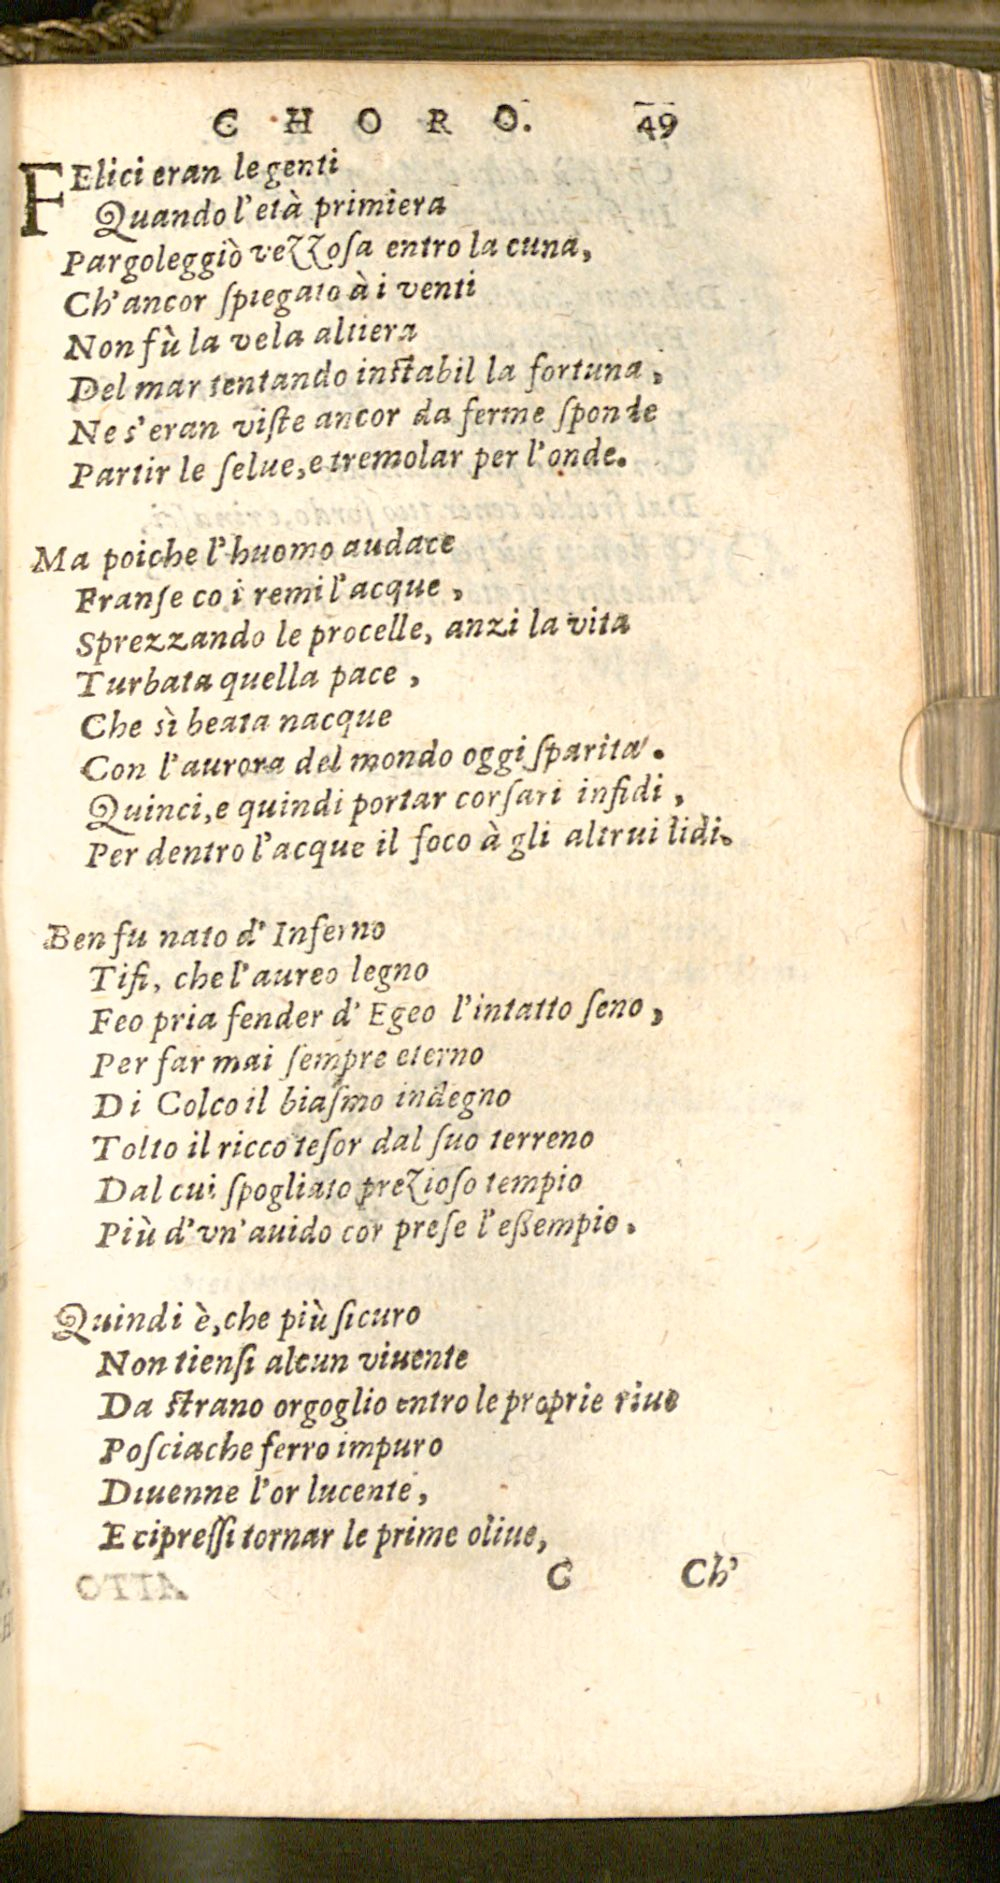 CHORO. 49
FElici eran le genti
Quando l'età primiera
Pargoleggiò vezzosa entro la cuna,
Ch'ancor spiegato à i venti
Non fù la vela altiera
Del mar tentando instabil la fortuna,
Ne s'eran viste ancor da ferme sponde
Partir le selue, e tremolar per l'onde.
Ma poiche l'huomo audace
Franse co i remi l'acque,
Sprezzando le procelle, anzi la vita
Turbata quella pace,
Che sì beata nacque
Con l'aurora del mondo oggi sparita.
Quinci, e quindi portar corsari infidi,
Per dentro l'acque il foco à gli altrui lidi.
Ben fu nato d'Inferno
Tifi, che l'aureo legno
Feo pria fender d'Egeo l'intatto seno,
Per far mai sempre eterno
Di Colco il biasmo indegno
Tolto il ricco tesor dal suo terreno
Dal cui spogliato prezioso tempio
Più d'vn'auido cor prese l'eßempio.
Quindi è, che più sicuro
Non tiensi alcun viuente
Da strano orgoglio entro le proprie riue
Posciache ferro impuro
Diuenne l'or lucente,
E cipressi tornar le prime oliue,
C Ch'